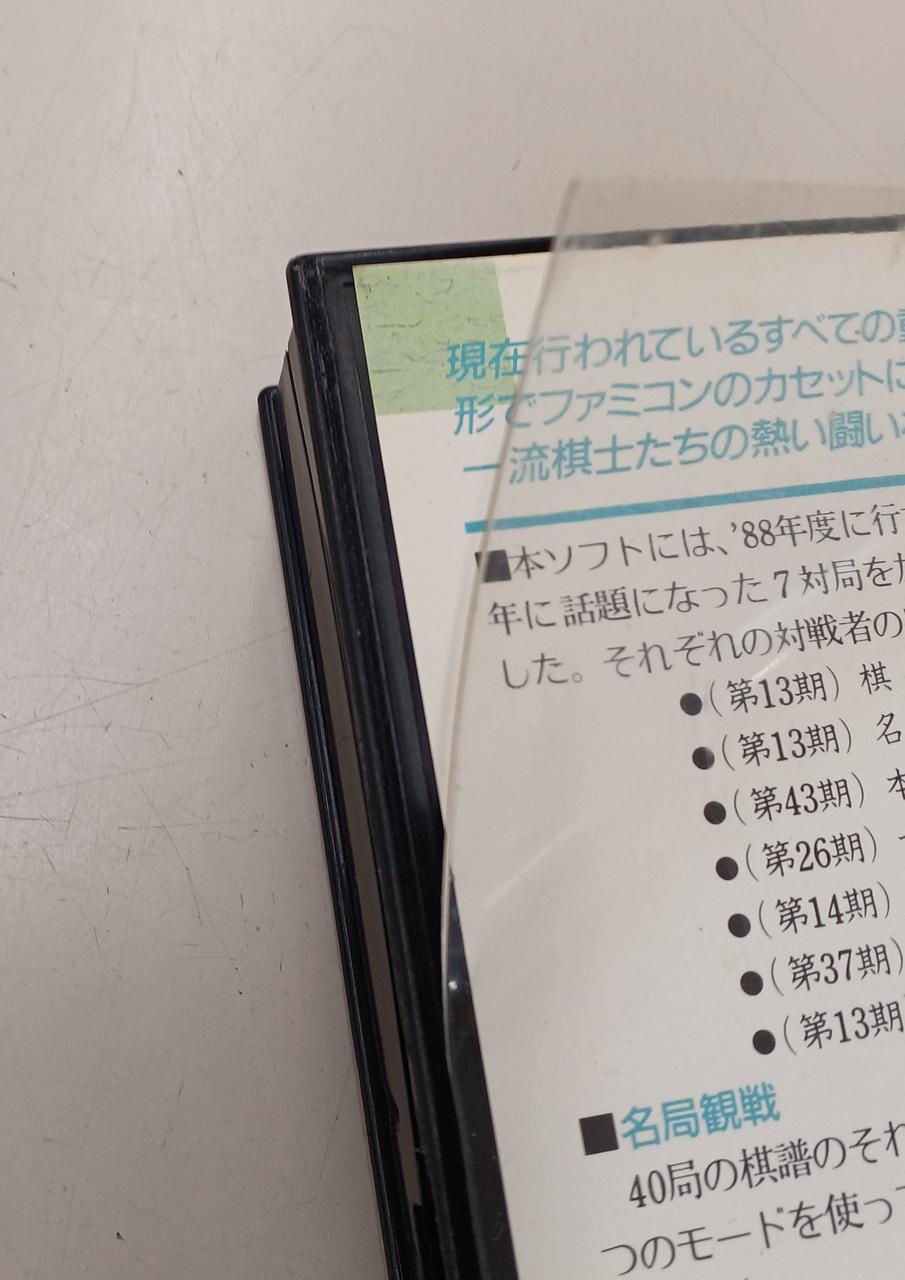 現在行われているすべての
形でファミコンのカセットに
一流棋士たちの熱い闘い
■本ソフトには、'88年度に行
年に話題になった7対局を
した。それぞれの対戦者の
●(第13期)棋
●(第13期)名
●(第43期)本
●(第26期)
●(第14期)
●(第37期)
●(第13期)
■名局観戦
40局の棋譜のそれ
つのモードを使っ